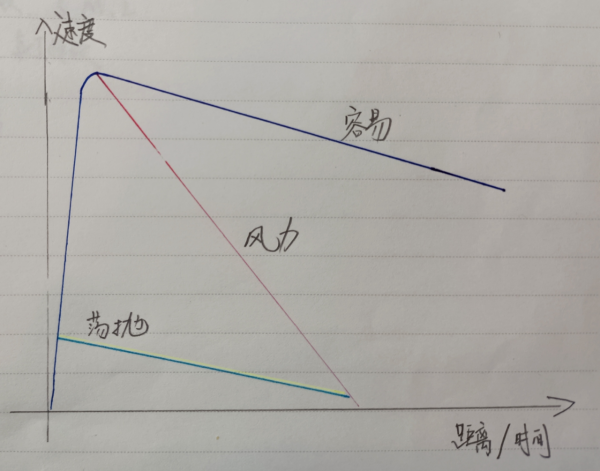 速度
容易
风力
荡抛
距离/时间